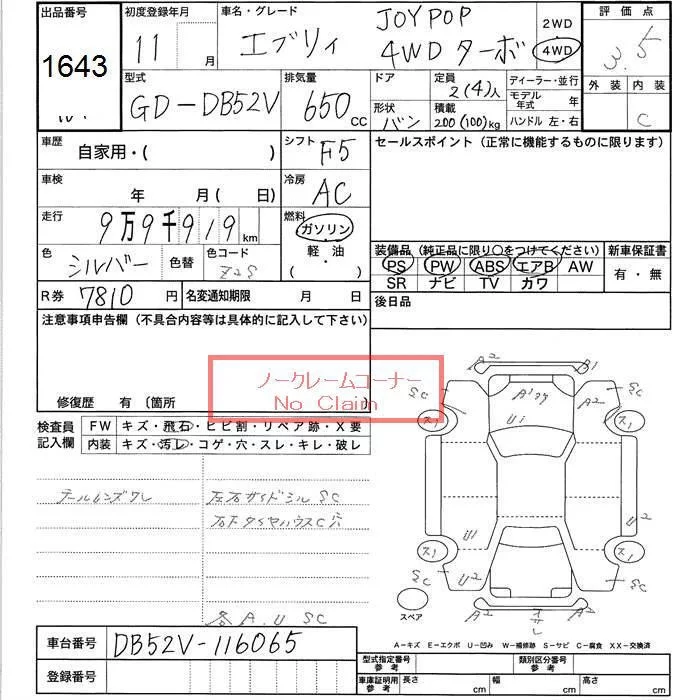 出品番号 初度登録年月 車名・グレード 評価点
1643 11月 エブリィ JOYPOP 2WD 3.5
4WD ターボ 4WD
型式 排気量 ドア 定員 ディーラー・並行 外装 内装
GD-DB52V 650CC 2(4)人 モデル年式 年 C
形状 バン 積載 200(100)kg ハンドル 左・右
車歴 自家用・( ) シフト F5 セールスポイント (正常に機能するものに限ります)
車検 年 月( 日) 冷房 AC
走行 9万9千919km 燃料 ガソリン
軽・油
( )
色 シルバー 色替 色コード Z2S
装備品 (純正品に限り○をつけてください) 新車保証書
PS PW ABS エアB AW 有・無
SR ナビ TV カワ
R券 7810円 名変通知期限 月 日 後日品
注意事項申告欄 (不具合内容等は具体的に記入して下さい)
ノークレームコーナー
No Claim
修復歴 有 〔箇所
検査員記入欄 FW キズ・飛石・ヒビ割・リペア跡・X要
内装 キズ・汚レ・コゲ・穴・スレ・キレ・破レ
テールレンズワレ 左右サイドシル SC
右F タイヤハウスC穴
各 A.U SC
A2 B1
SC A2 A2 SC
U1
ス1 ス1
U1 U2
ス1 ス1
SC U2 U2 SC
スペア A2 A2
A-キズ E-エクボ U-凹み W-補修跡 S-サビ C-腐食 XX-交換済
車台番号 DB52V-116065
登録番号
型式指定番号 参考 類別区分番号 参考
車庫証明用 参考 長さ cm 幅 cm 高さ cm